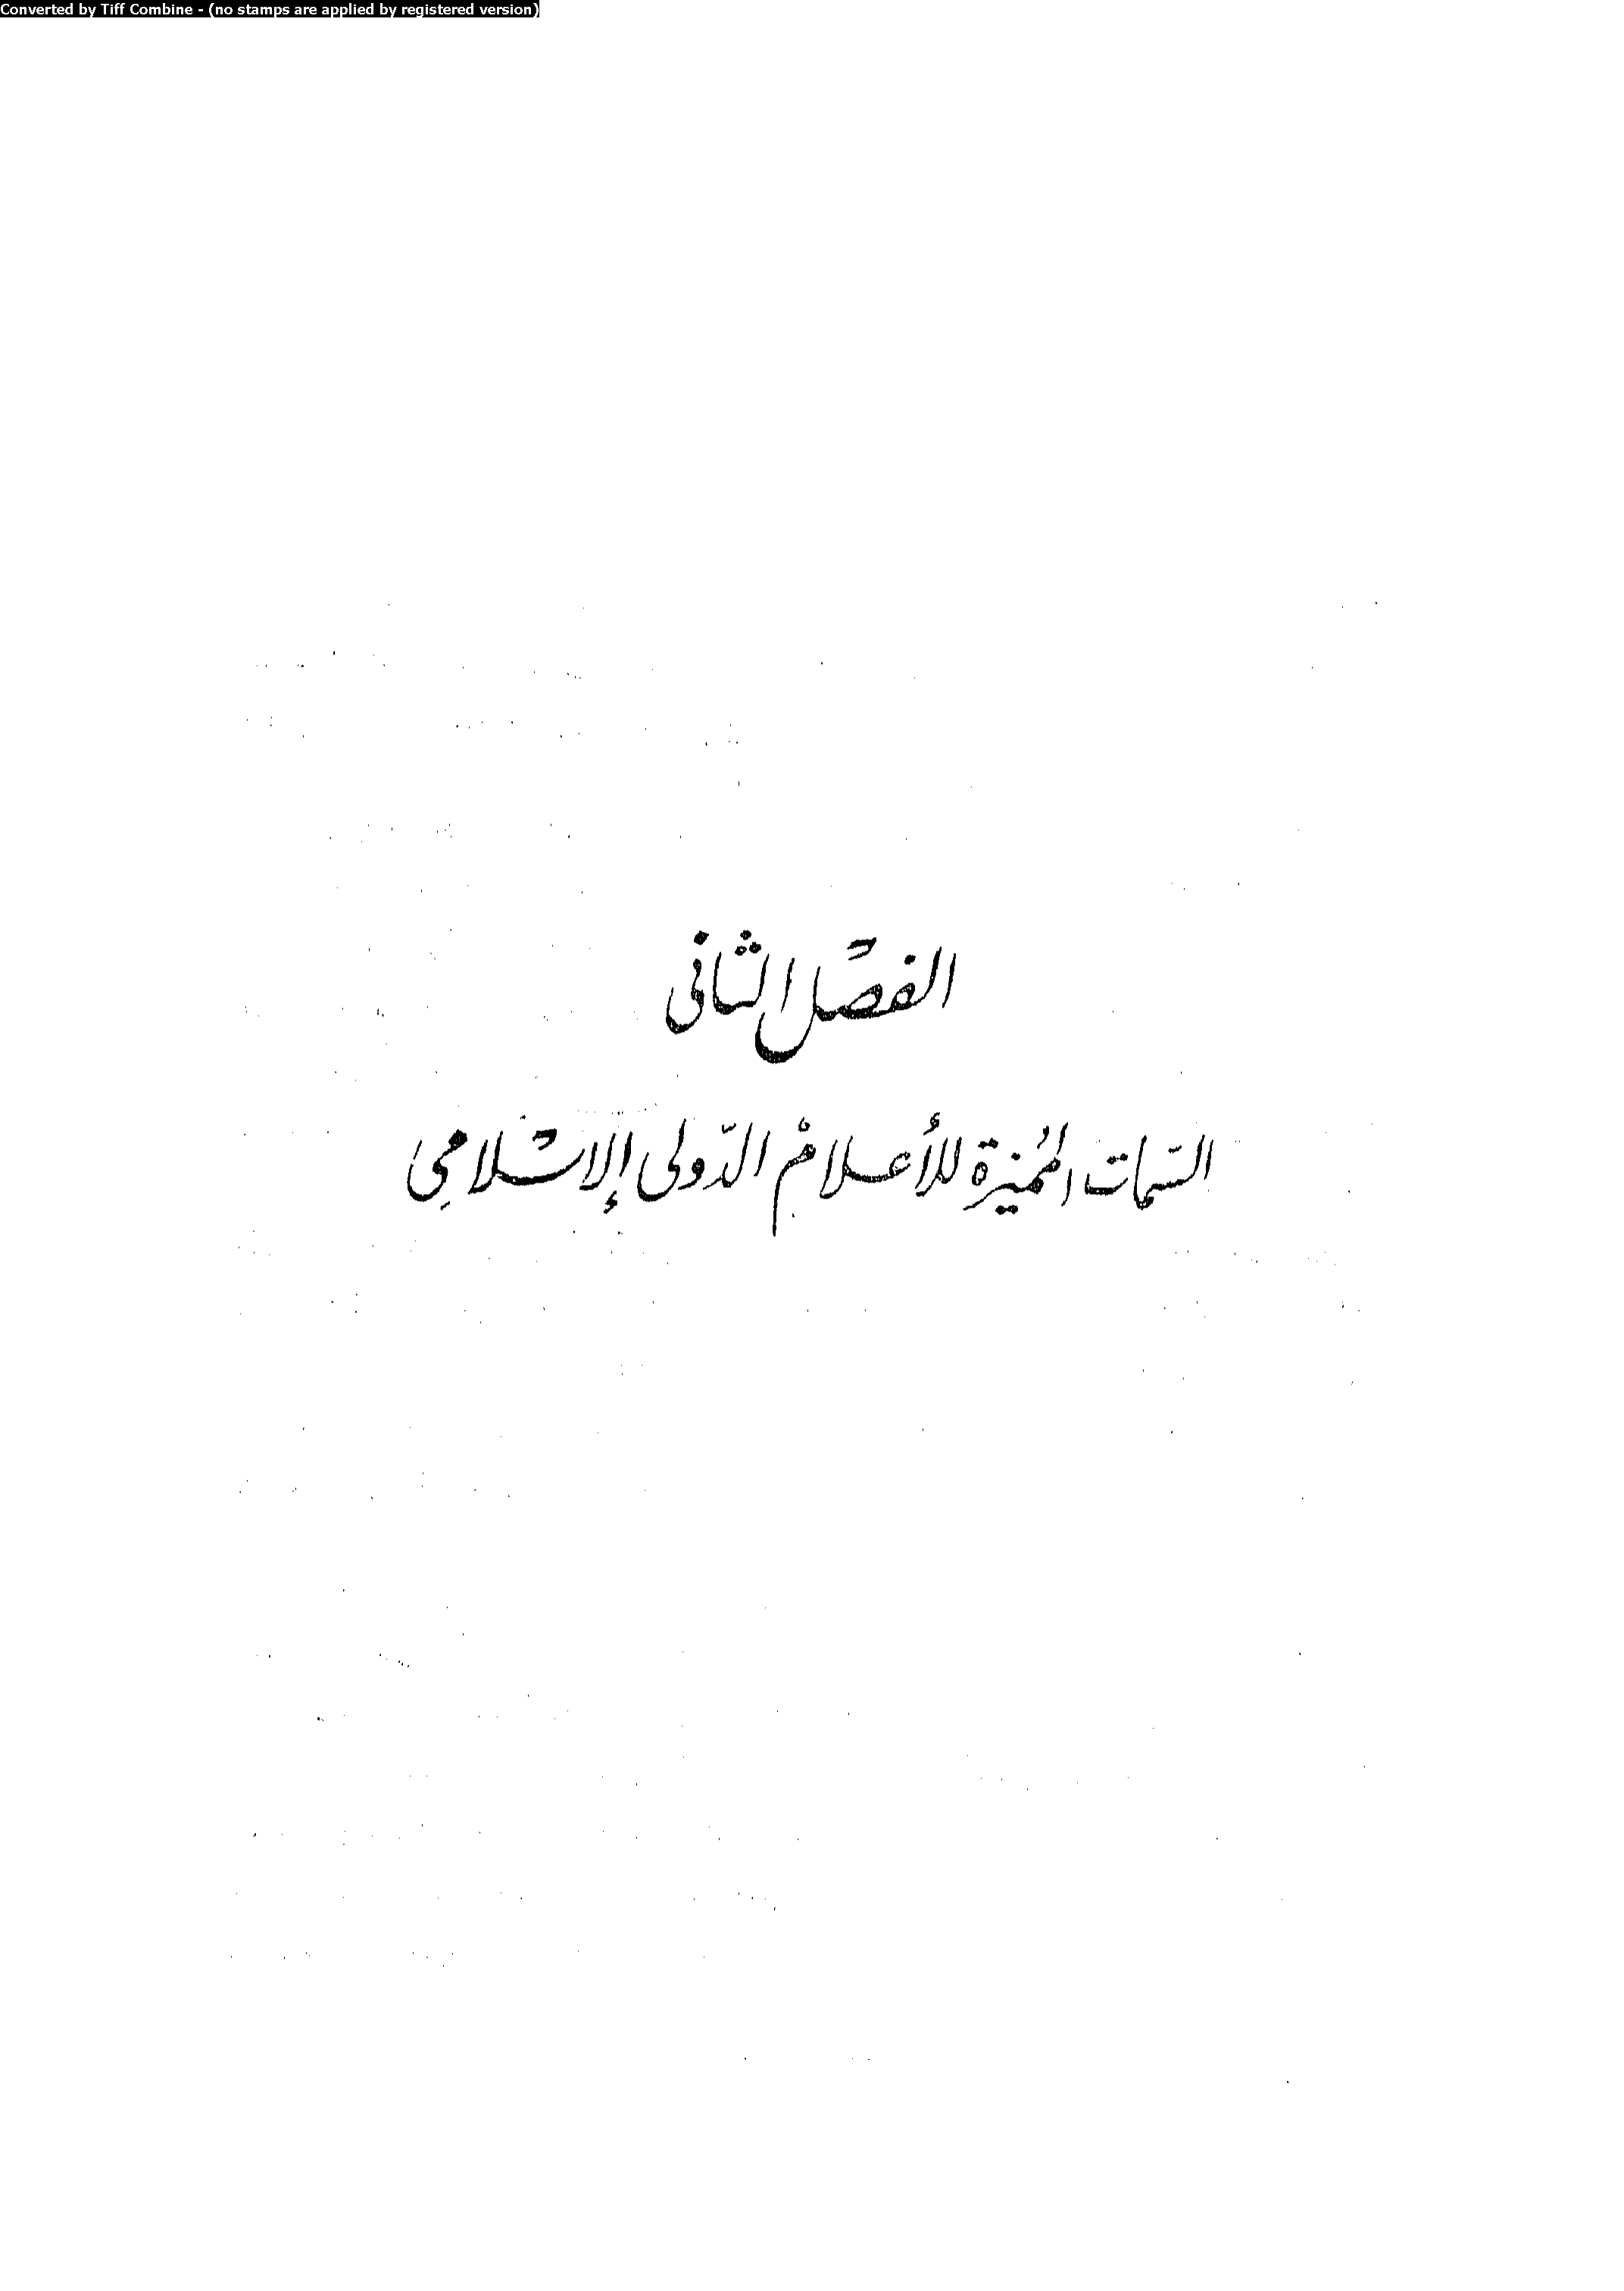 Converted by Tiff Combine - (no stamps are applied by registered version)
الفصل الثانى
السمات المميزة للأعلام الدّولى الإسلامى